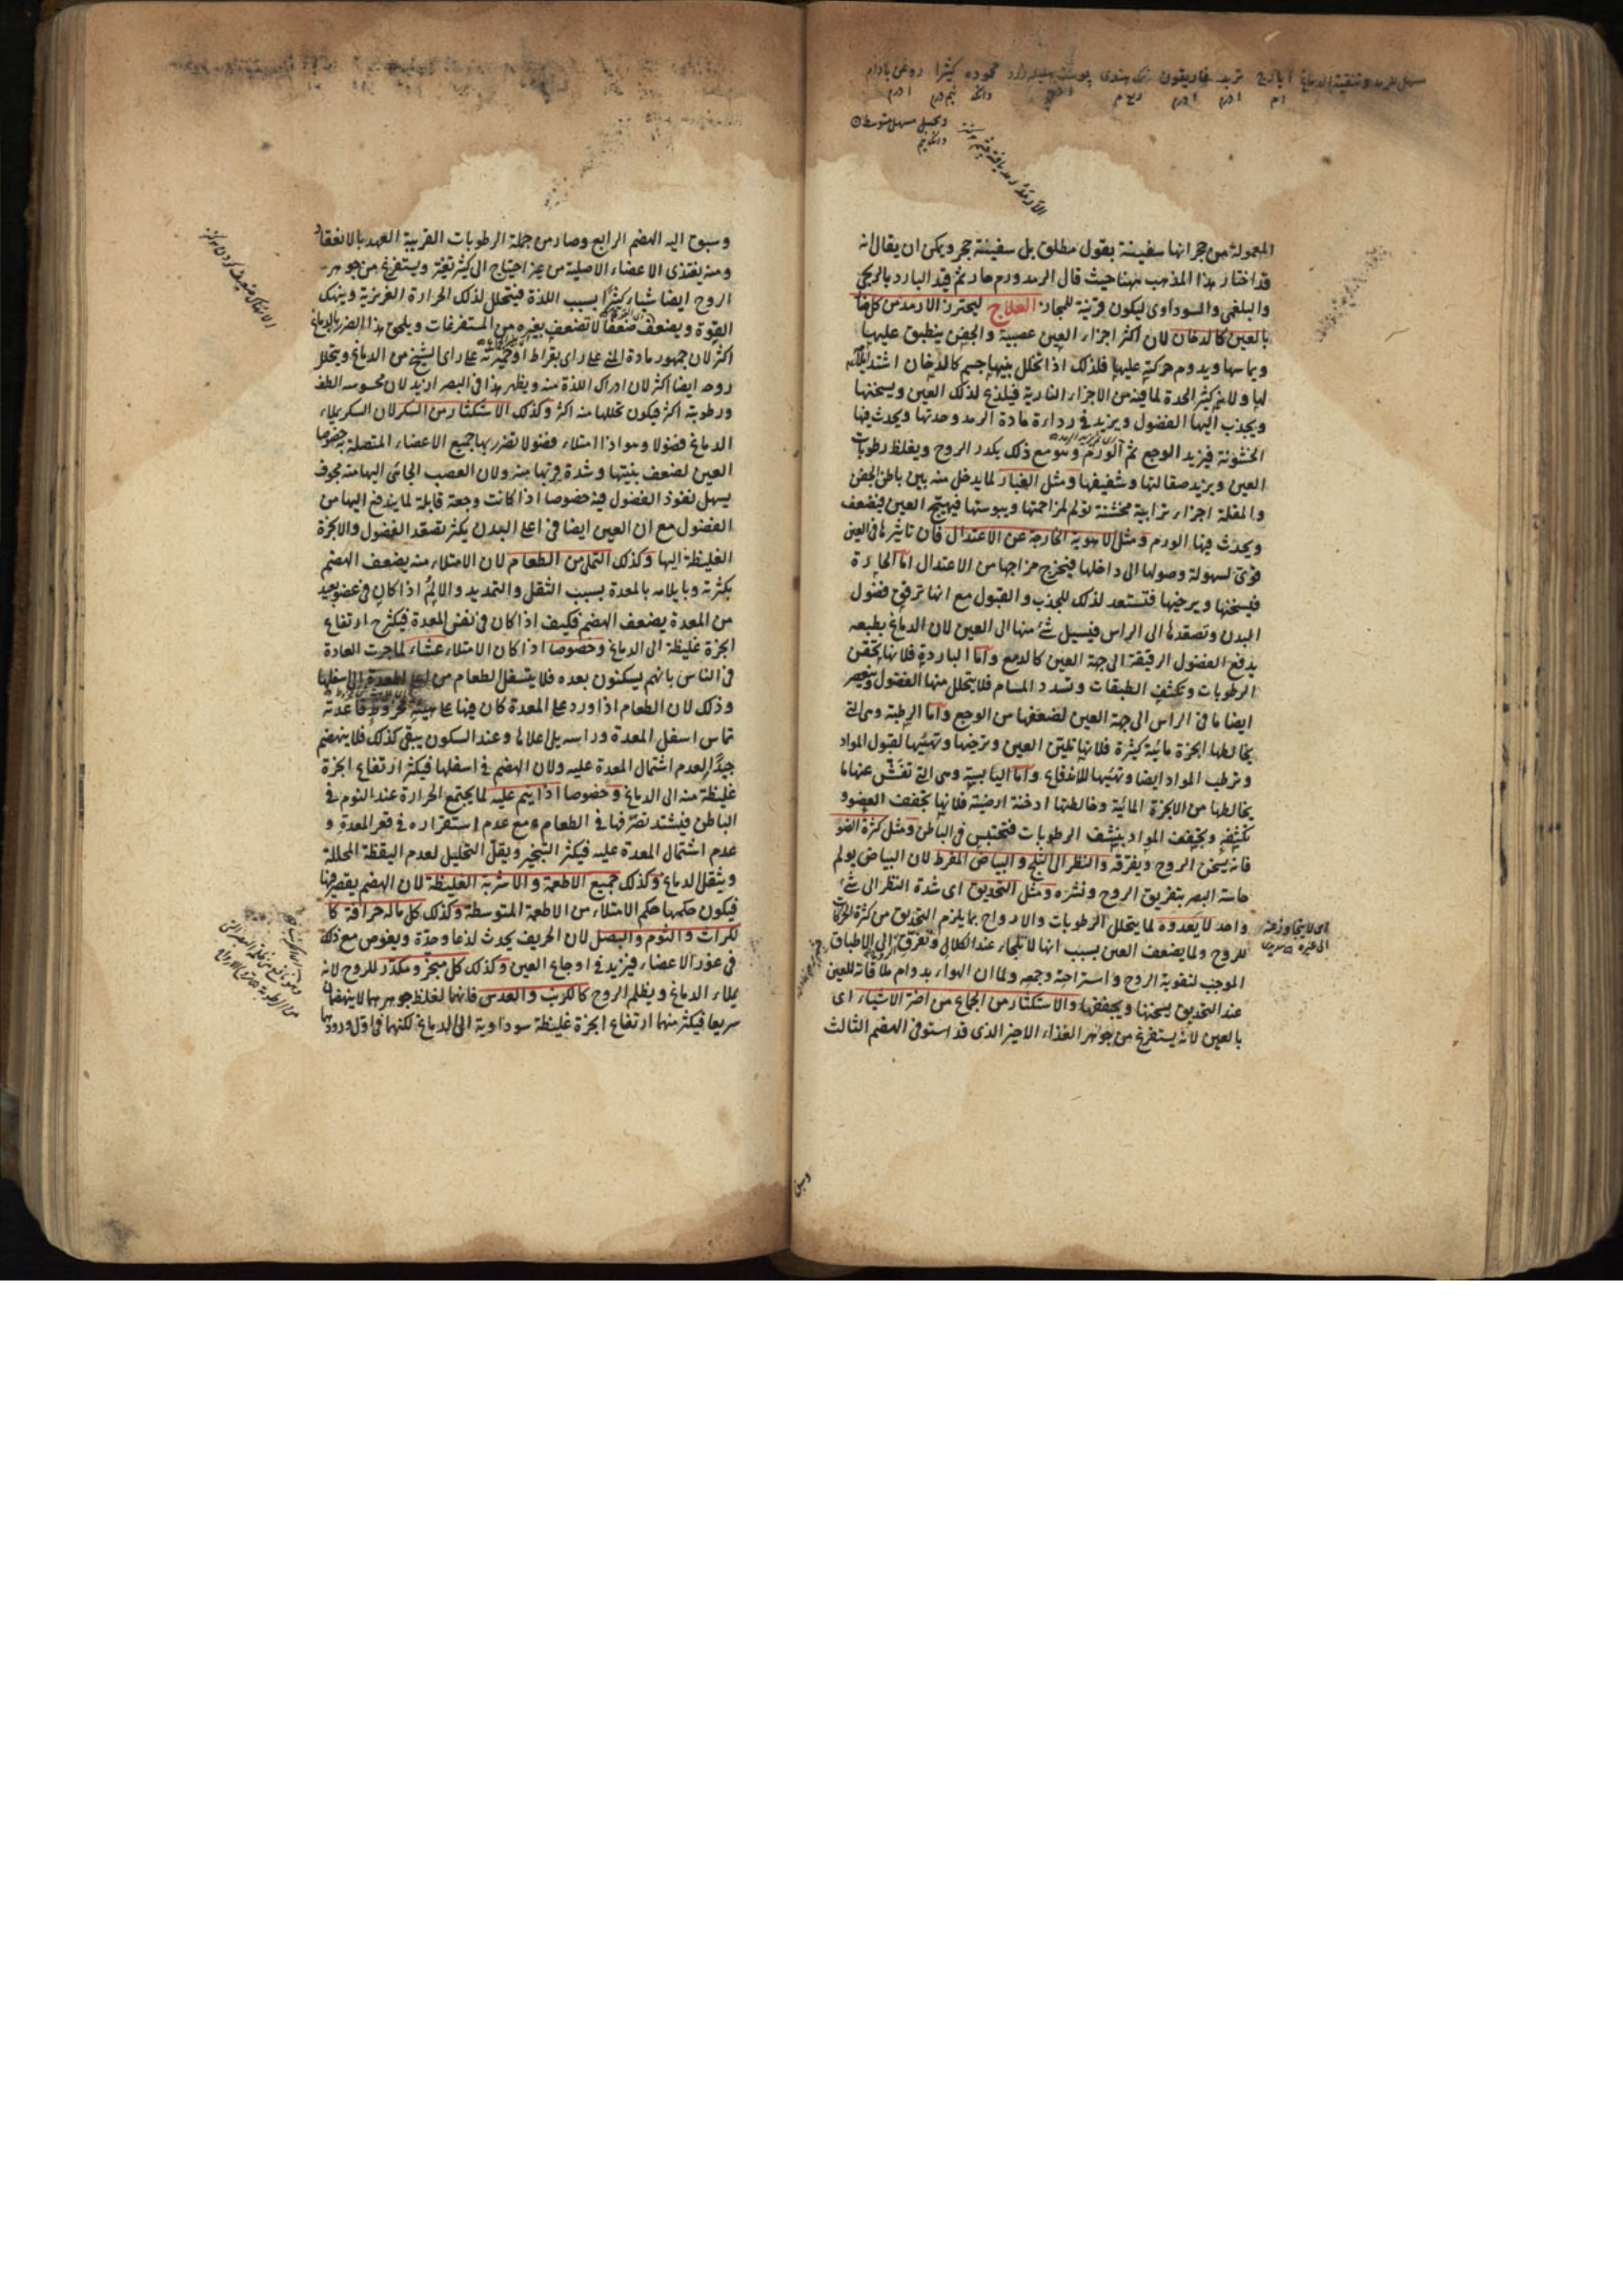 المعمولة من حجر انها سفينة بقول مطلق بل سفينة حجر ويمكن ان يقال انه
قد اختار هذا المذهب ههنا حيث قال الرمد ورم حار ثم قيد البارد بالريحى
والبلغمى والسوداوى ليكون قرينة للمجاز العلاج ليحترز الارمد من كل ضار
بالعين كالدخان لان اكثر اجزاء العين عصبية والجفن ينطبق عليها
ويماسها ويدوم حركته عليها فلذلك اذا تخلل بينها جسم كالدخان اشتد
لها ولانه كثير الحدة لما فيه من الاجزاء النارية فيلذع لذلك العين ويسخنها
ويجذب اليها الفضول ويزيد فى رداءة مادة الرمد وحدتها ويحدث فيها
الخشونة فيزيد الوجع ثم الورم وهو مع ذلك يكدر الروح ويغلظ رطوبات
العين ويزيد صقالتها وشفيفها ومثل الغبار لما يدخل منه بين باطن الجفن
والمقلة اجزاء ترابية مخشنة تولم لمزاحمتها ويبوستها فيهيج العين فيضعف
ويحدث فيها الورم ومثل الاهوية الخارجة عن الاعتدال فان تاثيرها فى العين
قوى لسهولة وصولها الى داخلها فيخرج مزاجها من الاعتدال اما الحارة
فيسخنها ويرخيها فتستعد لذلك للجذب والقبول مع انها ترقق فضول
البدن وتصعدها الى الراس فيسيل شئ منها الى العين لان الدماغ بطبعه
يدفع الفضول الرقيقة الى جهة العين كالدمع واما الباردة فلانها تحقن
الرطوبات وتكثف الطبقات وتسدد المسام فلا يتحلل منها الفضول وينعصر
ايضا ما فى الراس الى جهة العين لضعفها من الوجع واما الرطبة وهى التى
يخالطها ابخرة مائية كثيرة فلانها تليين العين وترخيها وتهيئها لقبول المواد
وترطب المواد ايضا وتهيئها للاندفاع واما اليابسة وهى التى تفشش عنها ما
يخالطها من الابخرة المائية وخالطتها ادخنة ارضية فلانها تجفف العضو و
تكثفه وتجفف المواد بنشف الرطوبات فتحتبس فى الباطن ومثل كثرة الضوء
فانه يسخن الروح ويفرقه والنظر الى الثلج والبياض المفرط لان البياض يولم
حاسة البصر بتفريق الروح ونشره ومثل التحديق اى شدة النظر الى شئ
واحد لا يعدوه لما يتحلل الرطوبات والارواح بما يلزم التحديق من كثرة الحركات
للروح ولما يضعف العين بسبب انها لا تلجاء عند الكلال وتفرق الى الاطباق
الموجب لتقوية الروح واستراحة وجمعه ولما ان الهواء بدوام ملاقاته للعين
عند التحديق يسخنها ويجففها والاستكثار من الجماع من اضر الاشياء اى
بالعين لانه يستفرغ من جوهر الغذاء الاخير الذى قد استوفى الهضم الثالث
وسبق
وسبق اليه الهضم الرابع وصار من جملة الرطوبات القريبة العهد بالانعقاد
ومنه يغتذى الاعضاء الاصلية من غير احتياج الى كثير تغير ويستفرغ من جوهر
الروح ايضا شياء كثيرا بسبب اللذة فيتحلل لذلك الحرارة الغريزية وينهك
القوة ويضعف ضعفا لا تضعف بغيره من المستفرغات ويلحق هذا الضرر بالدماغ
اكثر لان جمهور مادة المنى على راى بقراط او خميرته على راى الشيخ من الدماغ ويتحلل
روحه ايضا اكثر لان ادراك اللذة منه ويظهر هذا فى البصر ازيد لان محسوسه الطف
ورطوبته اكثر فيكون تحللها منه اكثر وكذلك الاستكثار من السكر لان السكر يملاء
الدماغ فضولا ومواد امتلاء فضولا تضرر بها جميع الاعضاء المتصلة به خصوصا
العين لضعف بنيتها وشدة قربها منه ولان العصب الجائى اليها منه مجوف
يسهل نفوذ الفضول فيه خصوصا اذا كانت وجعة قابلة لما يندفع اليها من
الفضول مع ان العين ايضا فى اعلى البدن يكثر تصعد الفضول والابخرة
الغليظة اليها وكذلك التملى من الطعام لان الامتلاء منه يضعف الهضم
بكثرته وبايلامه بالمعدة بسبب الثقل والتمديد والالم اذا كان فى عضو بعيد
من المعدة يضعف الهضم فكيف اذا كان فى نفس المعدة فيكثر ح ارتفاع
ابخرة غليظة الى الدماغ وخصوصا اذا كان الامتلاء عشاء لما جرت العادة
فى الناس بانهم يسكنون بعده فلا يتسفل الطعام من اعلى المعدة الى اسفلها
وذلك لان الطعام اذا ورد على المعدة كان فيها على هيئة مخروط قاعدته
تماس اسفل المعدة وراسه يلى اعلاها وعند السكون يبقى كذلك فلا ينهضم
جيدا لعدم اشتمال المعدة عليه ولان الهضم فى اسفلها فيكثر ارتفاع ابخرة
غليظة منه الى الدماغ وخصوصا اذا ينم عليه لما يجتمع الحرارة عند النوم فى
الباطن فيشتد تصرفها فى الطعام ومع عدم استقراره فى قعر المعدة و
عدم اشتمال المعدة عليه فيكثر التبخير ويقل التحليل لعدم اليقظة المحللة
ويثقل الدماغ وكذلك جميع الاطعمة والاشربة الغليظة لان الهضم يقصر فيها
فيكون حكمها حكم الامتلاء من الاطعمة المتوسطة وكذلك كل ماله حرافة كا
لكراث والثوم والبصل لان الحريف يحدث لذعا وحدة ويغوص مع ذلك
فى غور الاعضاء فيزيد فى اوجاع العين وكذلك كل مبخر ومكدر للروح لانه
يملاء الدماغ ويظلم الروح كالكرنب والعدس فانهما لغلظ جوهرهما لا ينهضمان
سريعا فيكثر منهما ارتفاع ابخرة غليظة سوداوية الى الدماغ لكنهما فى اول ورودهما